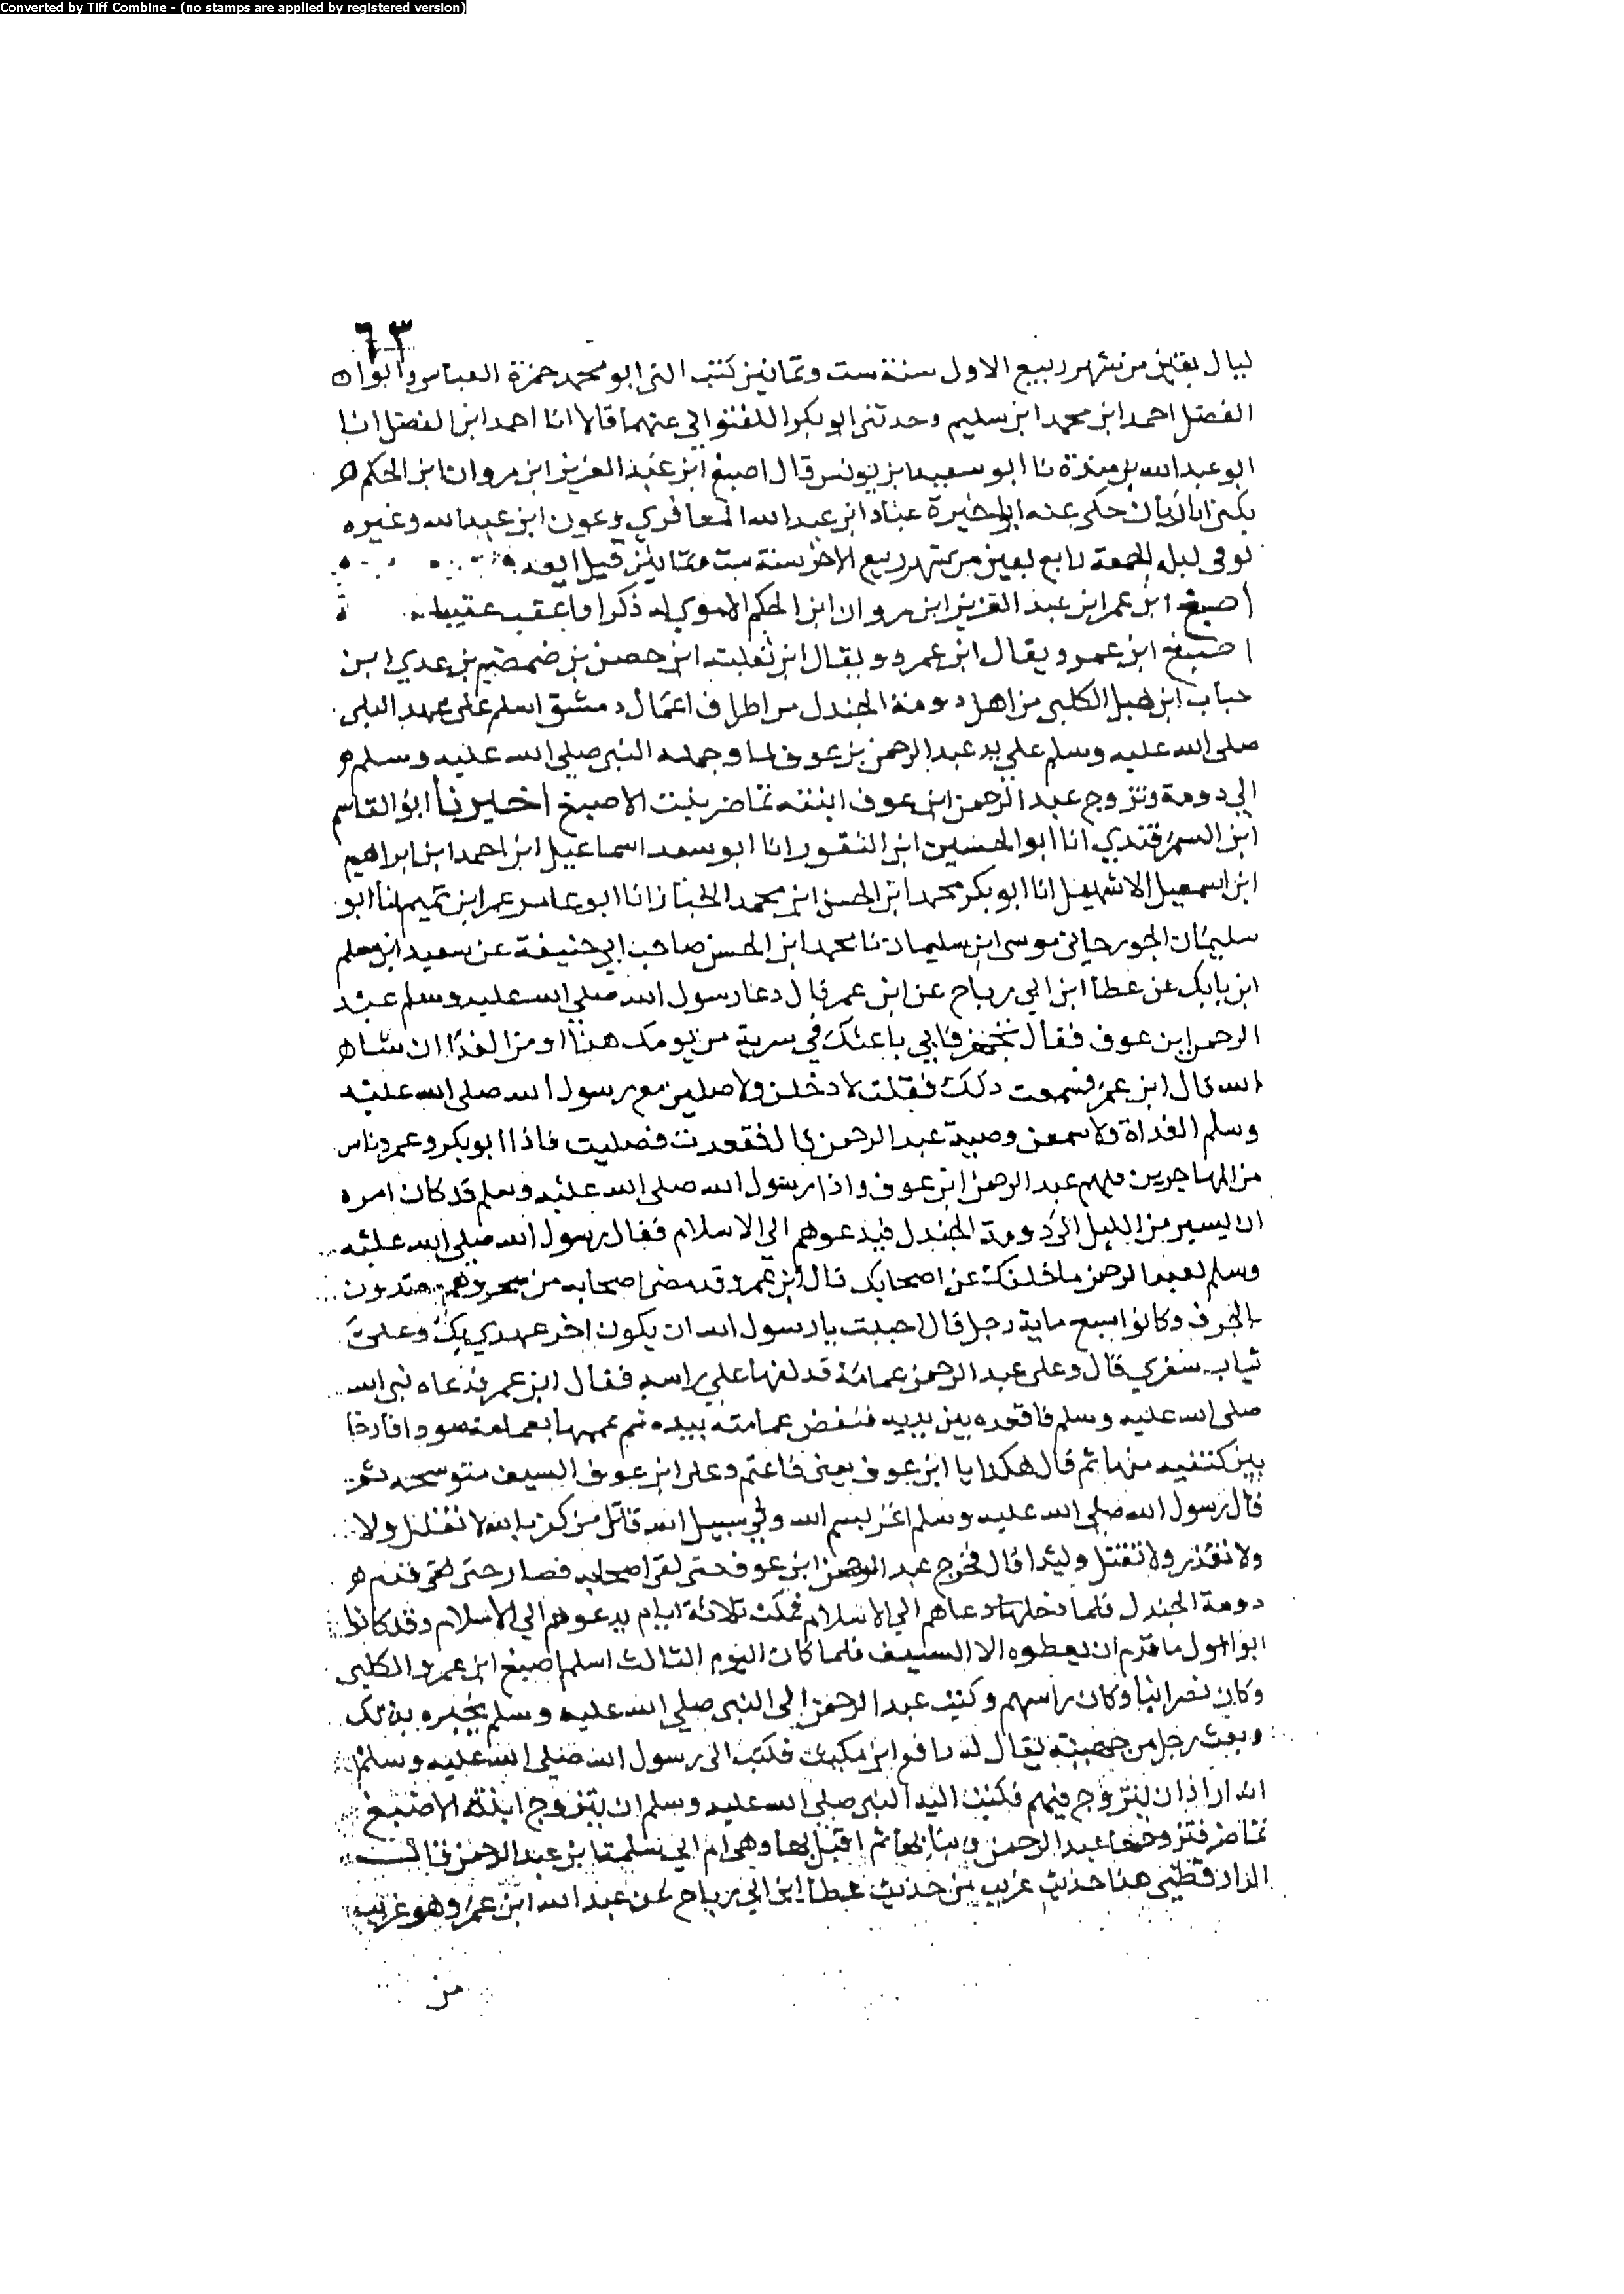 Converted by Tiff Combine - (no stamps are applied by registered version)
٦٣
ليال بقين من شهر ربيع الاول سنة ست وثمانين كتب الي ابو محمد حمزة العباس وابوا
الفضل احمد ابن محمد ابن سليم وحدثني ابو بكر اللفتواني عنهما قالا انا احمد ابن الفضل انا
ابو عبد الله بن مندة نا ابو سعيد ابن يونس قال اصبغ ابن عبد العزيز ابن مروان ابن الحكم
يكنى ابا ريان حكى عنه ابو خيرة عباد ابن عبد الله المعافري وعون ابن عبد الله وغيره
توفى ليلة الجمعة لاربع بقين من شهر ربيع الاخر سنة ست وثمانين قبل ابيه
اصبغ ابن عمر ابن عبد العزيز ابن مروان ابن الحكم الاموي له ذكر وما عقب عقبا
اصبغ ابن عمرو ويقال ابن عمرو ويقال ابن ثعلبت ابن حصن بن ضمضم بن عدي ابن
حباب ابن هبل الكلبي من اهل دومة الجندل من اطراف اعمال دمشق اسلم على عهد النبي
صلى الله عليه وسلم علي يد عبد الرحمن بن عوف لما وجهه النبي صلى الله عليه وسلم
الي دومة وتزوج عبد الرحمن ابن عوف ابنته تماضر بنت الاصبغ اخبرنا ابو القاسم
ابن السمرقندي انا ابو الحسين ابن النقور انا ابو سعد اسماعيل ابن احمد ابن ابراهيم
ابن اسمعيل الاشهيل انا ابو بكر محمد ابن الحسن ابن محمد الخباز انا ابو عامر عمر ابن تميم انا ابو
سليمان الجورجاني موسى ابن سليمان نا محمد ابن الحسن صاحب ابي حنيفة عن سعيد ابن مسلم
ابن بابك عن عطا ابن ابي رباح عن ابن عمر قال دعا رسول الله صلي الله عليه وسلم عبد
الرحمن ابن عوف فقال تجهز فاني باعثك في سرية من يومك هذا او من الغد ان شا
الله قال ابن عمر فسمعت ذلك فقلت لادخلن ولاصلين مع رسول الله صلى الله عليه
وسلم الغداة ولاسمعن وصية عبد الرحمن قال فقعدت فصليت فاذا ابو بكر وعمر وناس
من المهاجرين فيهم عبد الرحمن ابن عوف واذا رسول الله صلى الله عليه وسلم قد كان امره
ان يسير من الليل الى دومة الجندل فيدعوهم الي الاسلام فقال رسول الله صلي الله عليه
وسلم لعبد الرحمن ما خلفك عن اصحابك قال ابن عمر وقد مضى اصحابه من سحر وهم معتدون
بالجرف وكانوا سبع ماية رجل قال احببت يا رسول الله ان يكون اخر عهدي بك وعلى
ثياب سفري قال وعلى عبد الرحمن عمامة قد لفها علي راسه فقال ابن عمر فدعاه نبي الله
صلى الله عليه وسلم فاقعده بين يديه فنفض عمامته بيده ثم عممها بعمامة سودا فارخا
بين كتفيه منها ثم قال هكذا يا ابن عوف يعنى فاعتم وعلى ابن عوف السيف متوسحه ثم
قال رسول الله صلى الله عليه وسلم اغز بسم الله وفي سبيل الله قاتل من كفر بالله لا تغلل ولا
ولا تغدر ولا تقتل وليدا قال فخرج عبد الرحمن ابن عوف حتى لقي اصحابه فصار حتى قدم
دومة الجندل فلما دخلها دعاهم الي الاسلام فمكث ثلاثة ايام يدعوهم الي الاسلام وقد كانوا
ابوا اول ما قدم ان يعطوه الا السيف فلما كان اليوم الثالث اسلم اصبغ ابن عمرو الكلبي
وكان نصرانيا وكان راسهم وكتب عبد الرحمن الى النبي صلى الله عليه وسلم يخبره بذلك
وبعث رجل من جهينة يقال له رافع ابن مكيث فكتب الى رسول الله صلى الله عليه وسلم
انه اراد ان يتزوج فيهم فكتب اليه النبي صلي الله عليه وسلم ان يتزوج ابنة الاصبغ
تماضر فتزوجها عبد الرحمن وبنا بها ثم اقبل بها وهى ام ابي سلمة ابن عبد الرحمن قال
الدارقطني هذا حديث غريب من حديث عطا ابن ابي رباح عن عبد الله ابن عمر وهو غريب
من